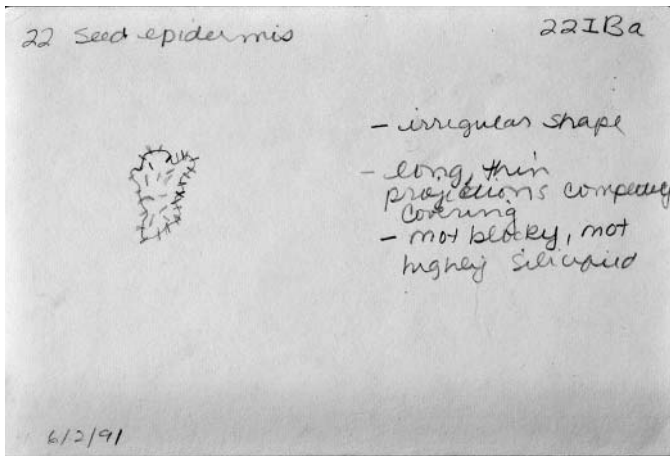 22 Seed epidermis
22IBa
- irregular shape
- long, thin
projections completely
covering
- not blocky, not
highly silicified
6/2/91